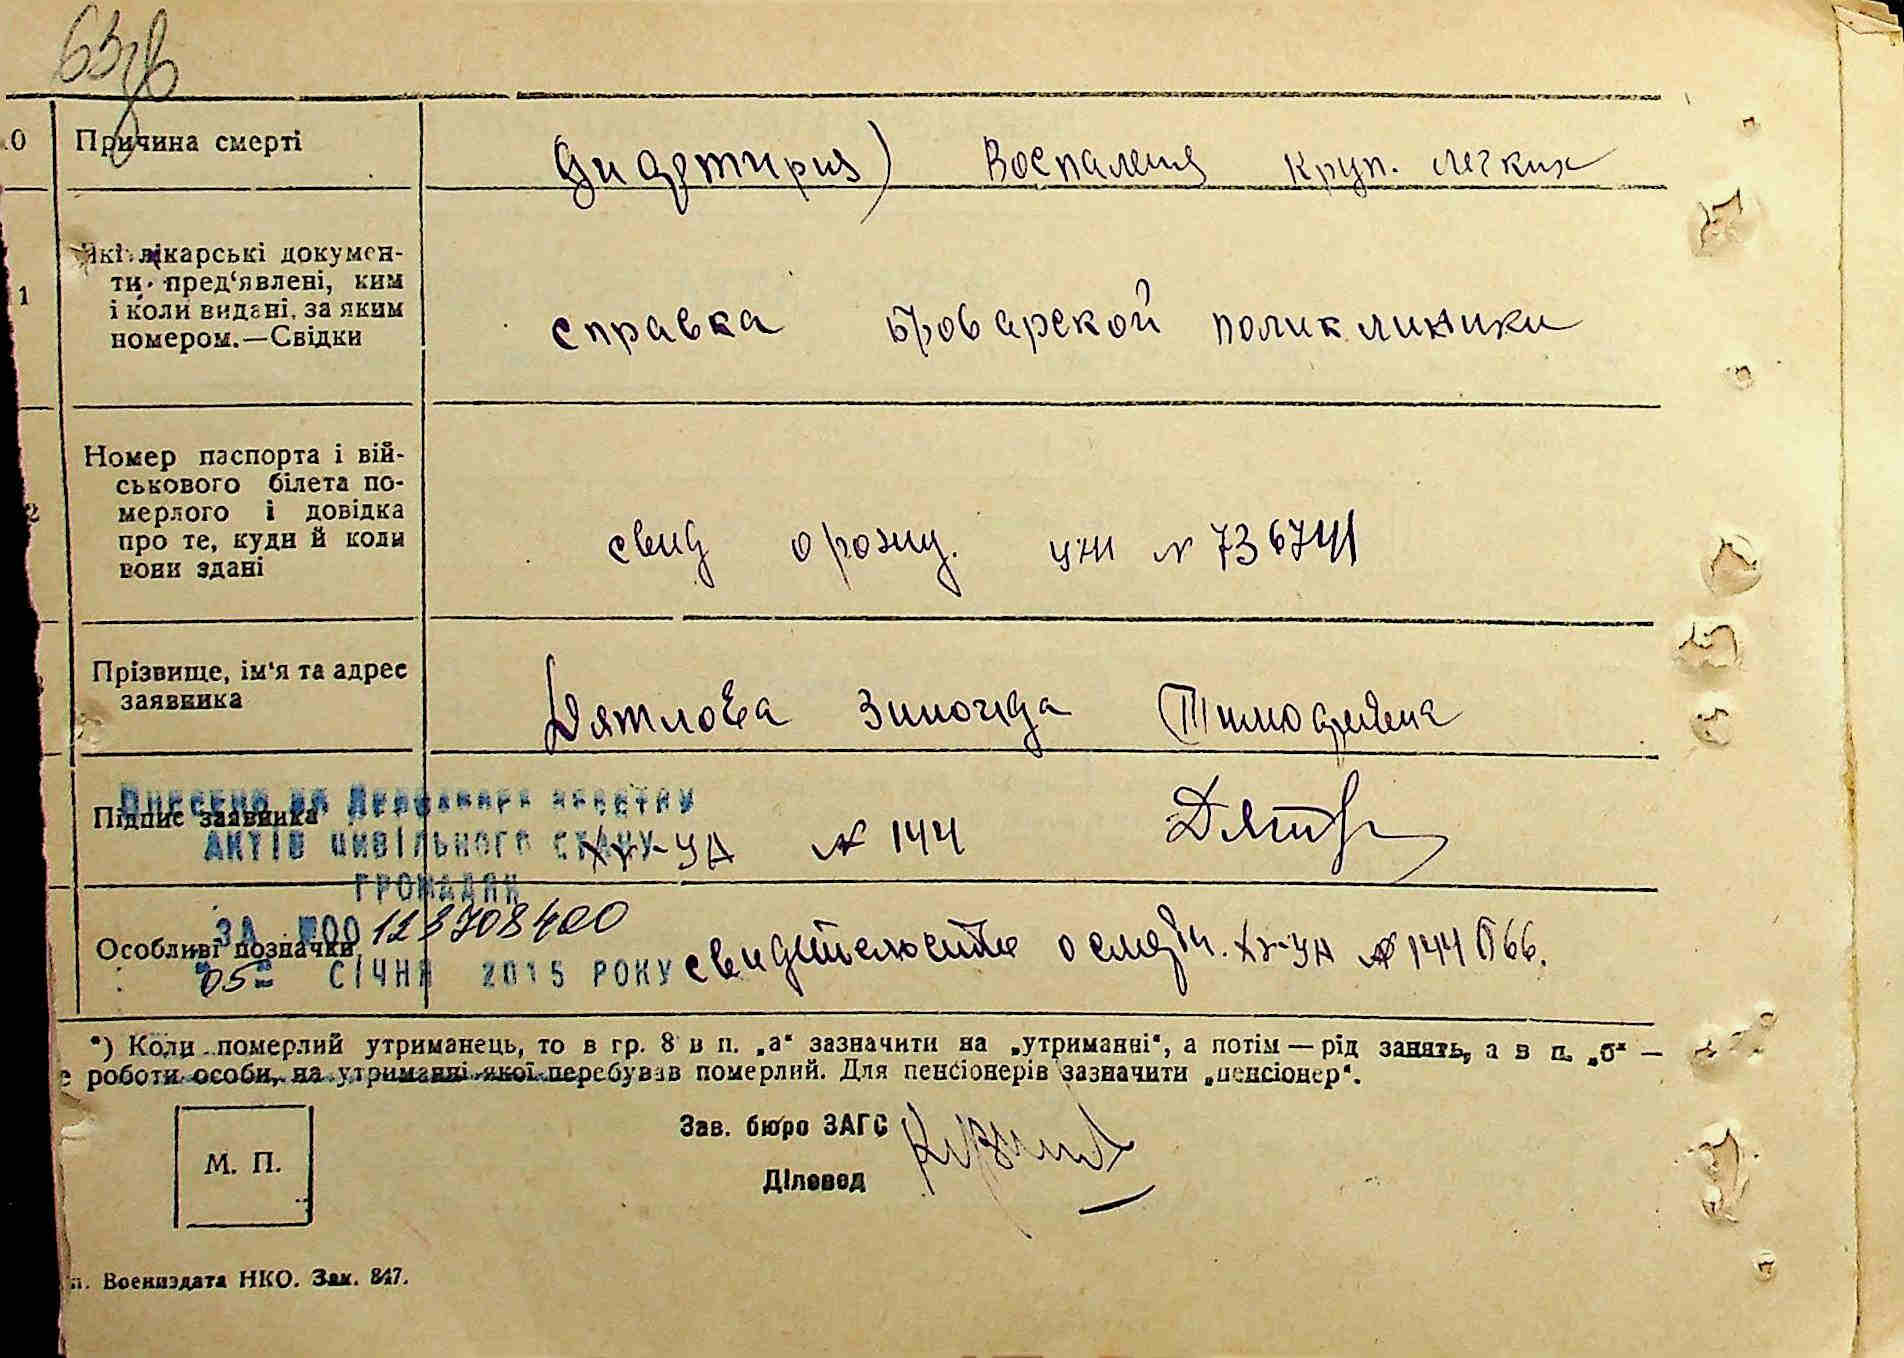 10 Причина смерті Дифтирия) Воспаления круп. легких
Які лікарські докумен-
ти пред‘явлені, ким
11 і коли видані, за яким
номером.—Свідки
справка Броварской поликлиники
Номер паспорта і вій-
ськового білета по-
2 мерлого і довідка
про те, куди й коли
вони здані
свид о рожд. № 736741
Прізвище, ім‘я та адрес
заявника
Дятлова Зиноида Тимофеевна
Внесено до Державного реєстру
Підпис заявника
актів цивільного стану
ХУ-УА № 144
громадян
за №00123708400
Особливі позначки
"05" січня 2015 року
свидетельство о смерти. ХУ-УА № 144066.
*) Коли померлий утриманець, то в гр. 8 в п. „а“ зазначити на „утриманні“, а потім — рід занять, а в п. „б“ —
е роботи особи, на утриманні якої перебував померлий. Для пенсіонерів зазначити „пенсіонер“.
Зав. бюро ЗАГС
М. П.
Діловод
п. Воениздата НКО. Зак. 847.